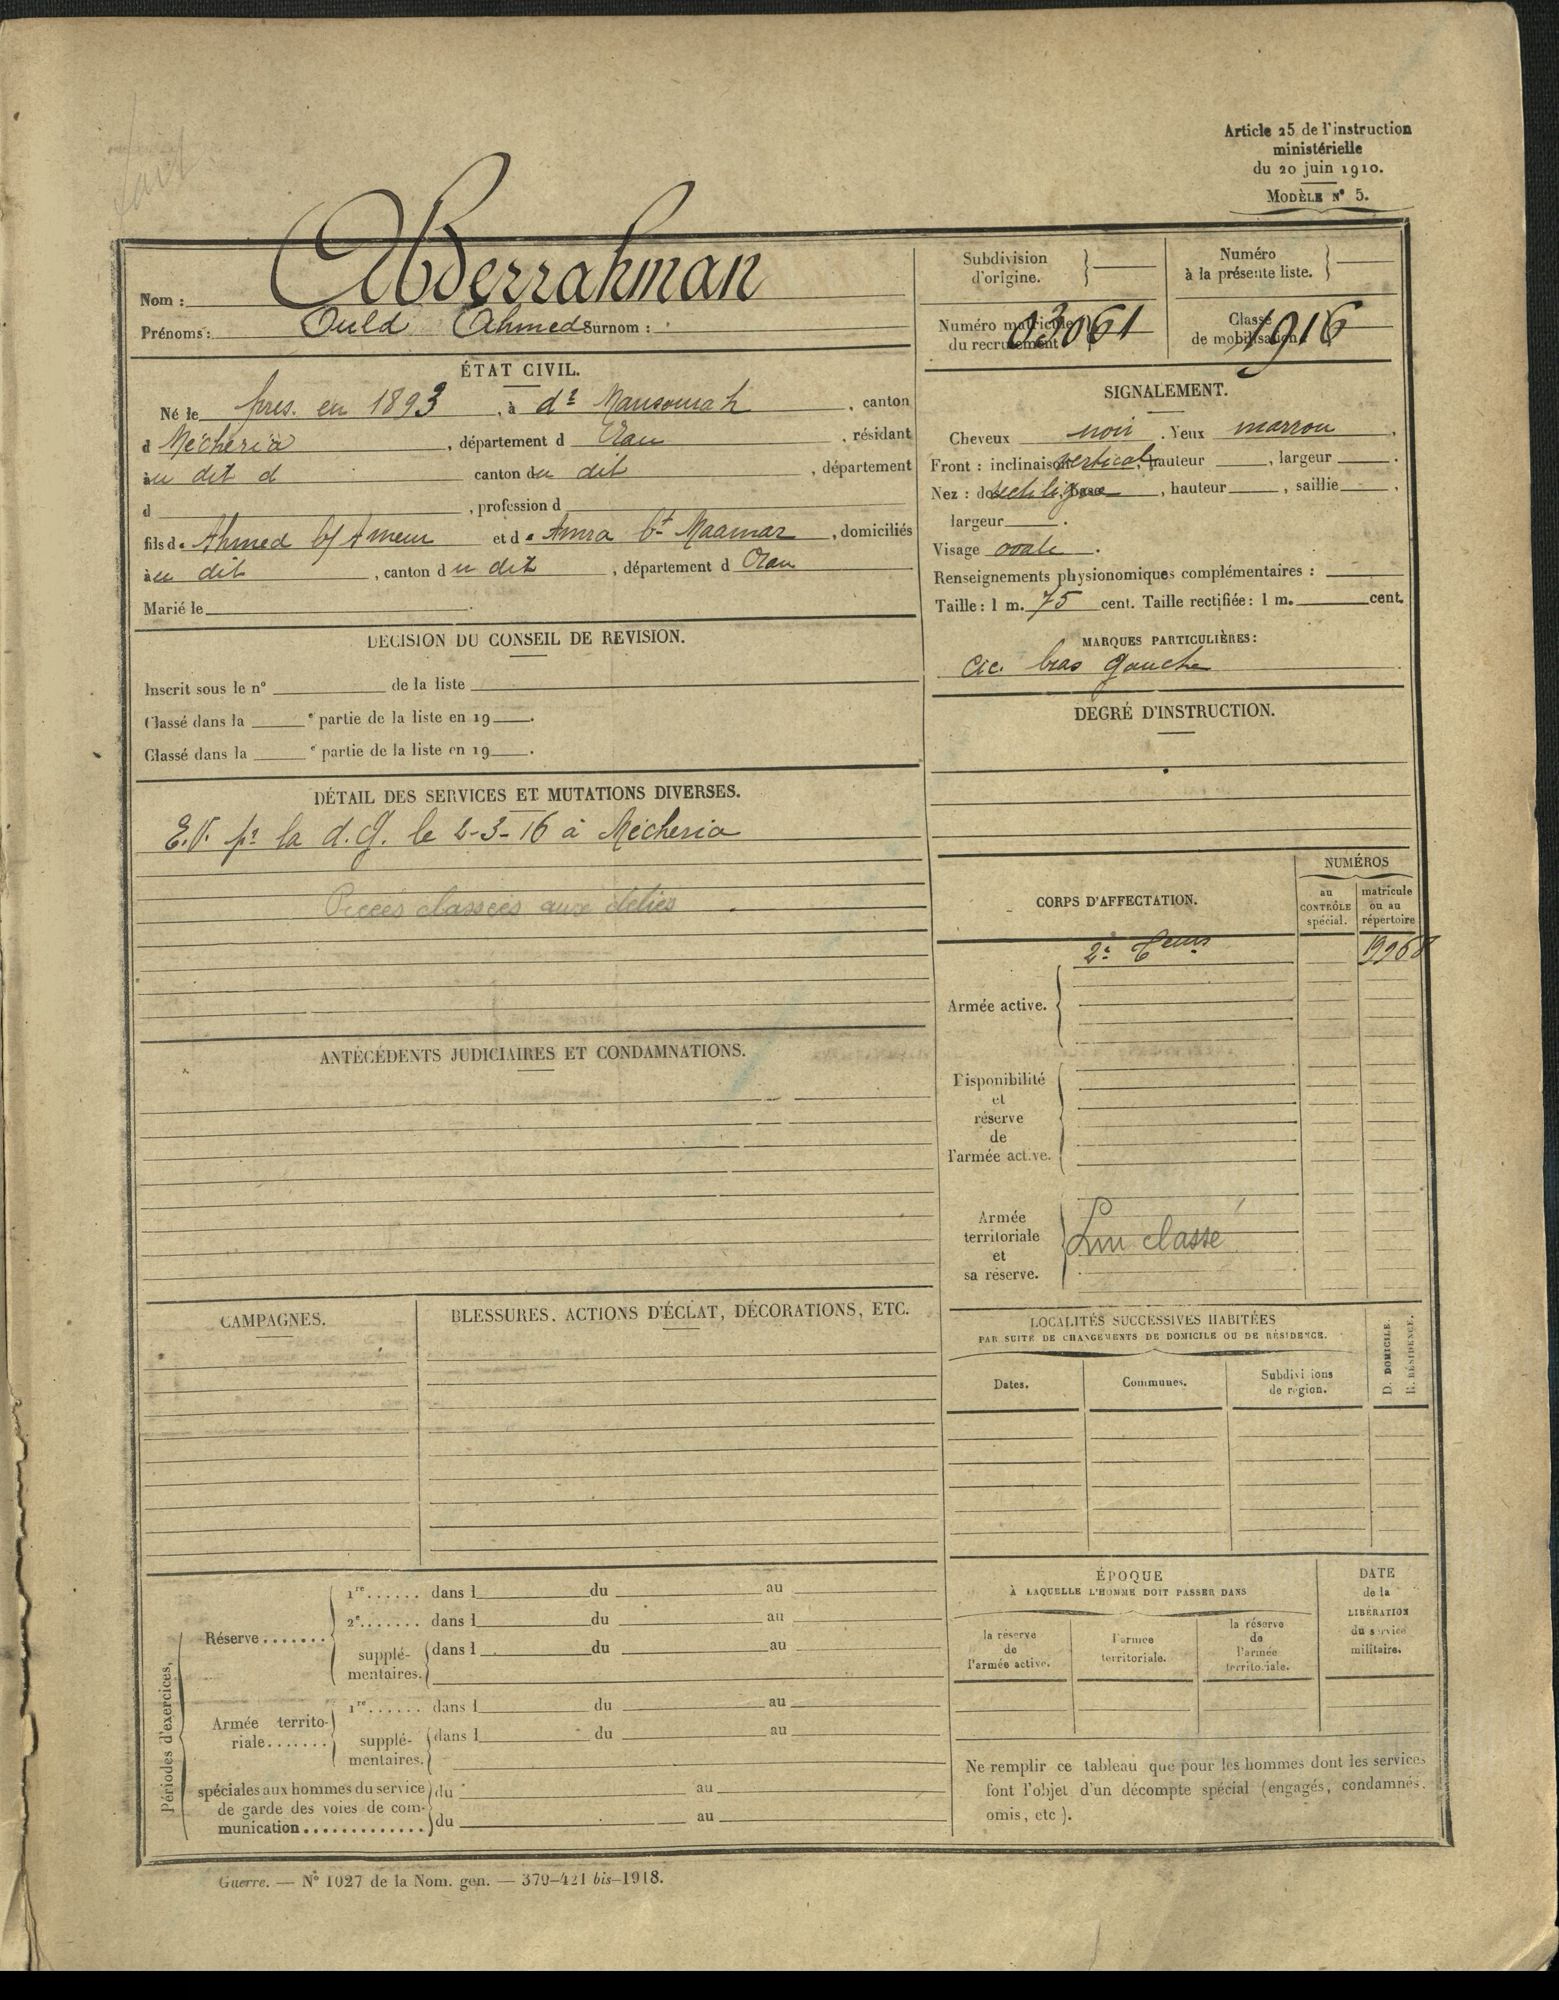 Article 25 de l'instruction
ministérielle
du 20 juin 1910.
MODÈLE N° 5.
Nom : Abderrahman
Prénoms : Ould Ahmed Surnom :
Subdivision
d'origine.
Numéro
à la présente liste.
Numéro matricule
du recrutement
03061
Classe
de mobilisation
1916
ÉTAT CIVIL.
Né le pres. en 1893, à dr Mansourah, canton
d Mécheria, département d Oran, résidant
à u dit d canton du dit, département
d , profession d
fils de Ahmed b/ Ameur et de Amra bt Maamar, domiciliés
à u dit, canton du dit, département d Oran
Marié le
SIGNALEMENT.
Cheveux noir. Yeux marron,
Front : inclinaison vertical, hauteur , largeur .
Nez : dos rectiligne, base , hauteur , saillie ,
largeur .
Visage ovale.
Renseignements physionomiques complémentaires :
Taille : 1 m. 75 cent. Taille rectifiée : 1 m. cent.
MARQUES PARTICULIÈRES :
Cic. bras gauche
DÉCISION DU CONSEIL DE REVISION.
Inscrit sous le n° de la liste
Classé dans la e partie de la liste en 19 .
Classé dans la e partie de la liste en 19 .
DEGRÉ D'INSTRUCTION.
DÉTAIL DES SERVICES ET MUTATIONS DIVERSES.
E.V. pr la d. g. le 2-3-16 à Mécheria
Pièces classées aux
CORPS D'AFFECTATION.
NUMÉROS
au
CONTRÔLE
spécial.
matricule
ou au
répertoire
2e Teurs
Armée active.
Disponibilité
et
réserve
de
l'armée active.
Armée
territoriale
et
sa réserve.
classé
ANTÉCÉDENTS JUDICIAIRES ET CONDAMNATIONS.
CAMPAGNES.
BLESSURES, ACTIONS D'ÉCLAT, DÉCORATIONS, ETC.
LOCALITÉS SUCCESSIVES HABITÉES
PAR SUITE DE CHANGEMENTS DE DOMICILE OU DE RÉSIDENCE.
D. DOMICILE.
R. RÉSIDENCE.
Dates.
Communes.
Subdivisions
de région.
Périodes d'exercices,
Réserve.......
1re...... dans l du au
2e....... dans l du au
supplé-
mentaires.
dans l du au
Armée territo-
riale.......
1re...... dans l du au
supplé-
mentaires.
dans l du au
spéciales aux hommes du service
de garde des voies de com-
munication.............
du au
du au
ÉPOQUE
À LAQUELLE L'HOMME DOIT PASSER DANS
la réserve
de
l'armée active.
l'armée
territoriale.
la réserve
de
l'armée
territoriale.
DATE
de la
LIBÉRATION
du service
militaire.
Ne remplir ce tableau que pour les hommes dont les services
font l'objet d'un décompte spécial (engagés, condamnés,
omis, etc).
Guerre. — N° 1027 de la Nom. gen. — 370-421 bis-1918.